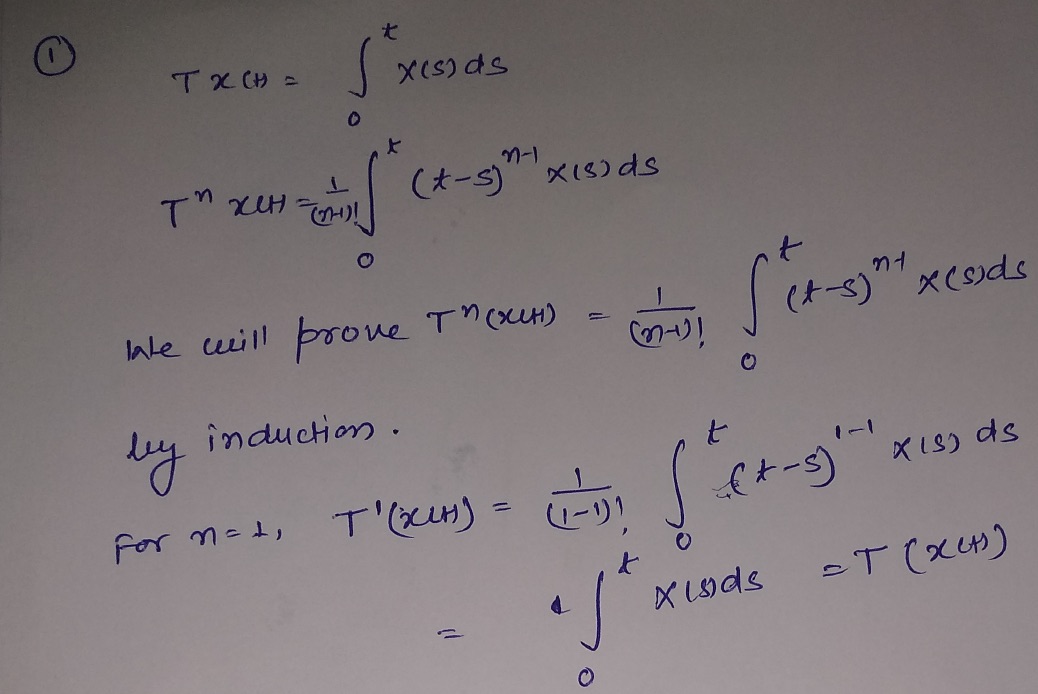 ① T x(t) = ∫₀ᵗ x(s) ds
Tⁿ x(t) = 1/(n-1)! ∫₀ᵗ (t-s)ⁿ⁻¹ x(s) ds
We will prove Tⁿ(x(t)) = 1/(n-1)! ∫₀ᵗ (t-s)ⁿ⁻¹ x(s) ds
by induction.
For n=1, T¹(x(t)) = 1/(1-1)! ∫₀ᵗ (t-s)¹⁻¹ x(s) ds
= ∫₀ᵗ x(s) ds = T(x(t))